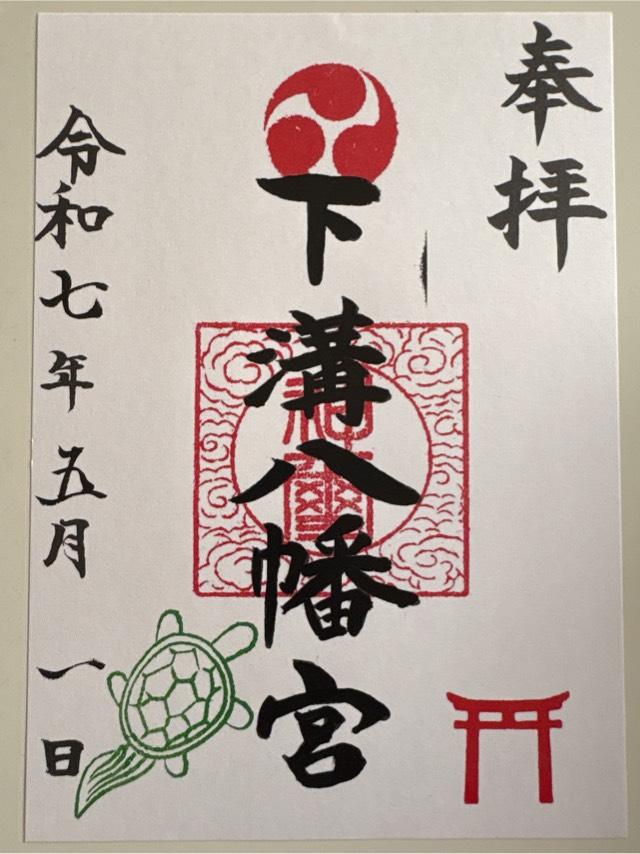 奉拝
下溝八幡宮
令和七年五月一日